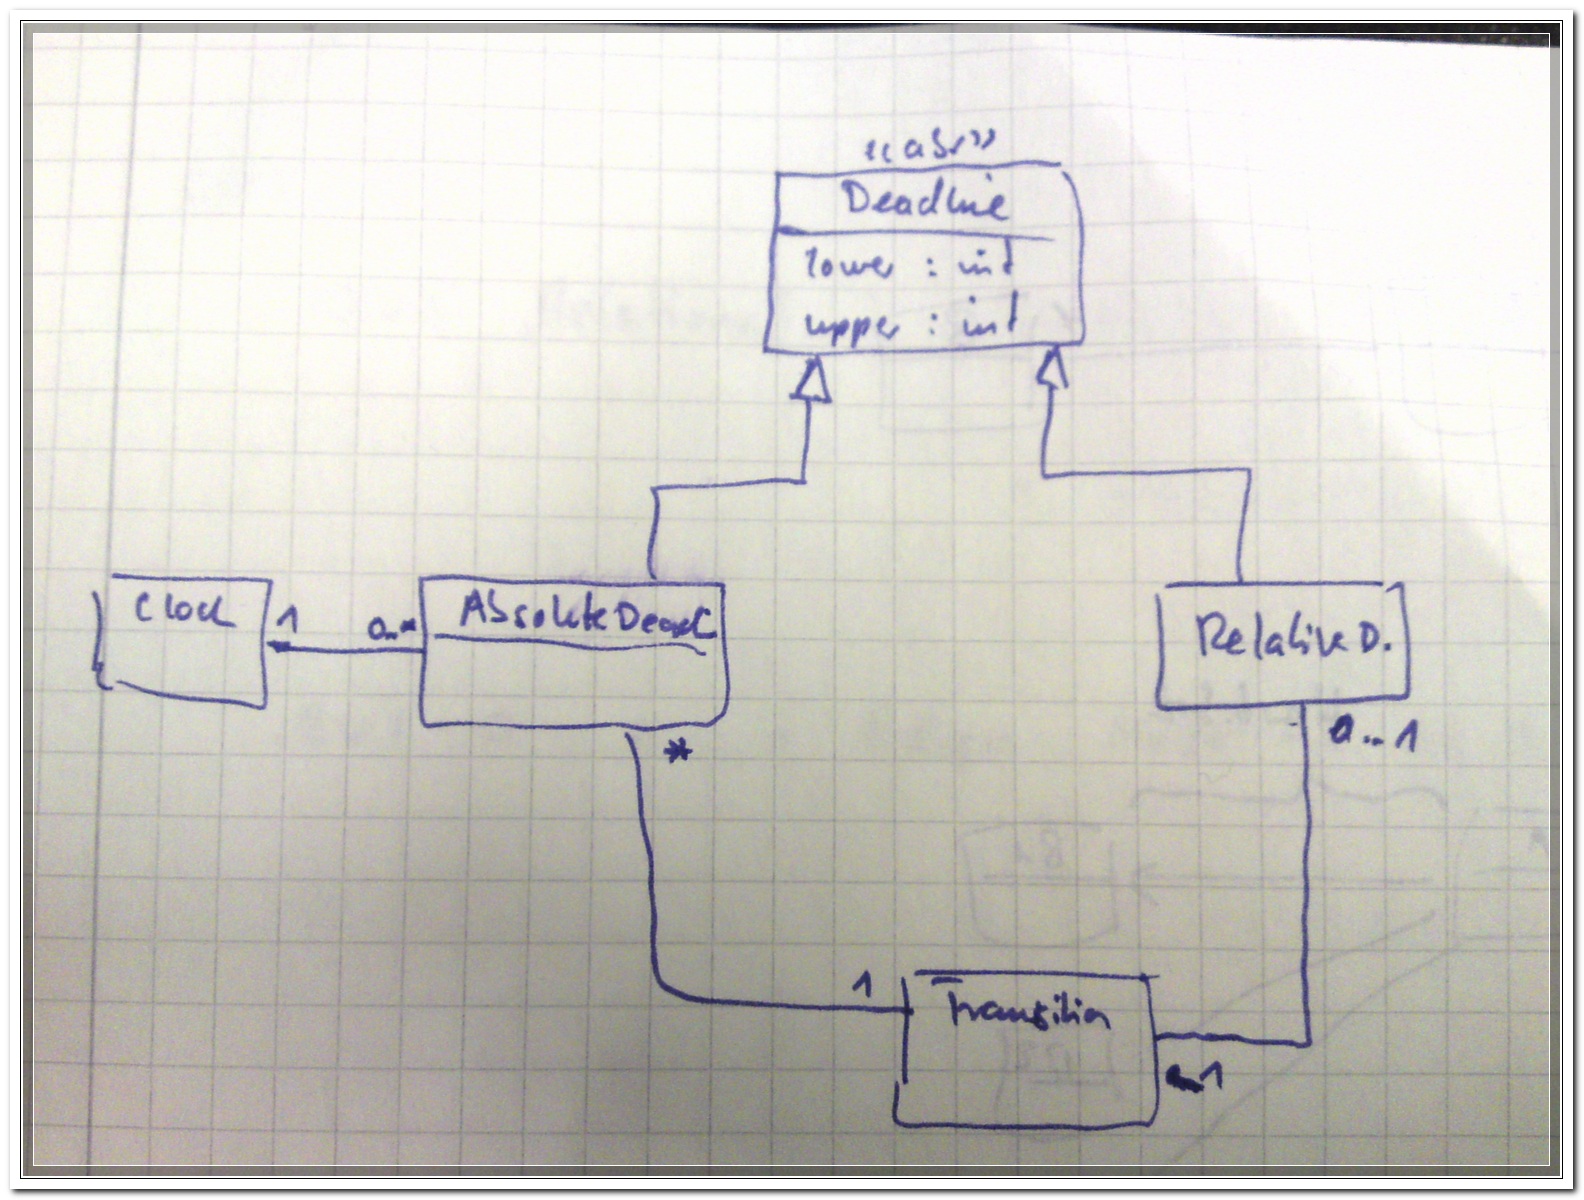 «abs»
Deadline
lower : int
upper : int
Clock
1
0..*
AbsoluteDeadl
RelativeD.
*
0..1
1
Transition
1